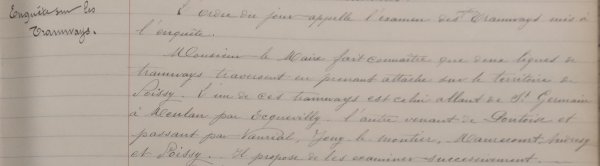 Enquête sur les
Tramways.
L'ordre du jour appelle l'examen des Tramways mis à
l'enquête.
Monsieur le Maire fait connaître que deux lignes de
tramways traversent en prenant attache sur le territoire de
Poissy. L'un de ces tramways est celui allant de St Germain
à Meulan par Ecquevilly. L'autre venant de Pontoise et
passant par Vauréal, Jouy-le-moutier, Maurecourt, Andresy
et Poissy. Il propose de les examiner successivement.